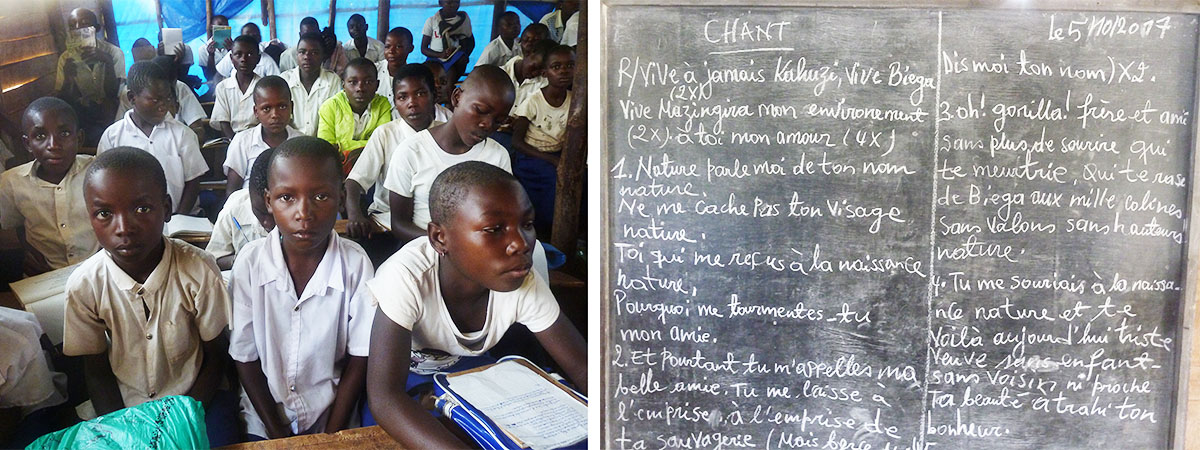 CHANT
R/Vive à jamais Kahuzi, Vive Biega
(2x)
Vive Mazingira mon environement
(2x). à toi mon amour (4x)
1. Nature parle moi de ton nom
nature.
Ne me cache pas ton visage
nature.
Toi qui me reçus à la naissance
nature,
Pourquoi me tourmentes-tu
mon amie.
2. Et pourtant tu m'appelles ma
belle amie. Tu me laisse à
l'emprise, à l'emprise de
ta sauvagerie (Mais
Le 5/10/2017
Dis moi ton nom) X2.
3. oh! gorilla! frère et ami
sans plus de sourire qui
te meurtrie, Qui te
de Biega aux mille colines
sans valons sans hauteurs
nature.
4. Tu me souriais à la naissa-
nce nature et t-e
voilà aujourd'hui triste
veuve sans enfant-
sans voisin, ni proche
Ta beauté a trahi ton
bonheur.